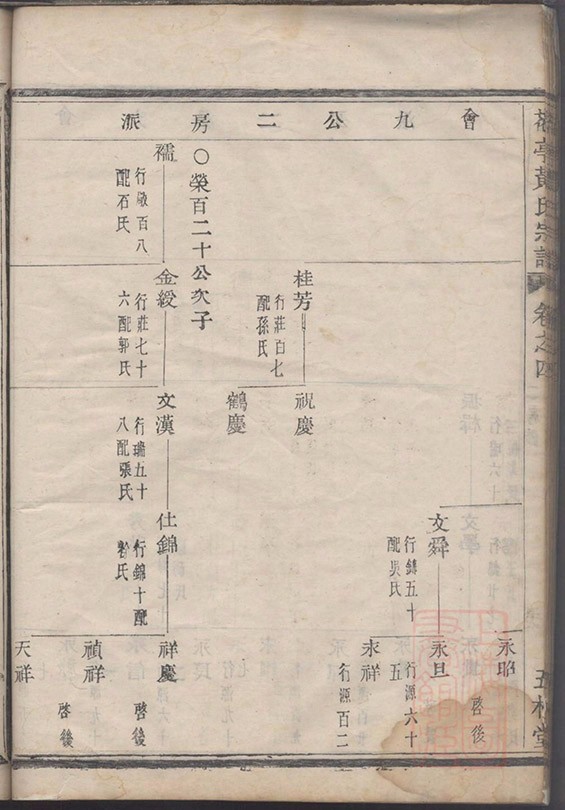 黃氏宗譜
卷之四
五桂堂
會九公二房派
永昭
啓後
文舜
行錦五十
配吳氏
永旦
行源六十
五
永祥
行源百二
桂芳
行莊百七
配孫氏
祝慶
鶴慶
○榮百二十公次子
襦
行啟百八
配石氏
金綬
行莊七十
六配郭氏
文漢
行瑞五十
八配張氏
仕錦
行錦十配
氏
祥慶
啓後
禎祥
啓後
天祥